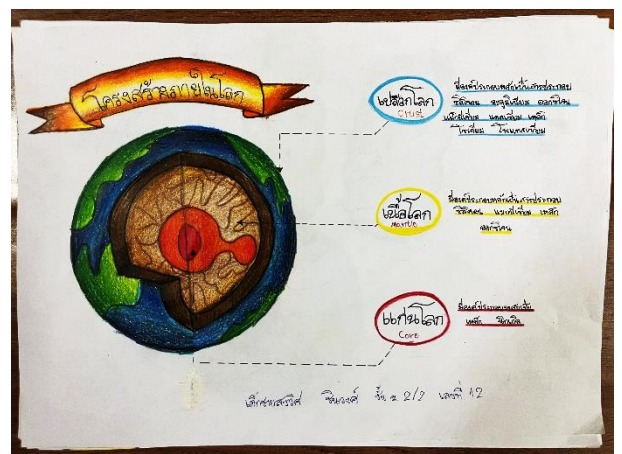 โครงสร้างภายในโลก
เปลือกโลก
Crust
มีองค์ประกอบหลักเป็นสารประกอบ
ซิลิคอน อะลูมิเนียม ออกซิเจน
แมกนีเซียม แคลเซียม เหล็ก
โซเดียม โพแทสเซียม
เนื้อโลก
Mantle
มีองค์ประกอบหลักเป็นสารประกอบ
ซิลิคอน แมกนีเซียม เหล็ก
ออกซิเจน
แก่นโลก
Core
มีองค์ประกอบหลักเป็น
เหล็ก นิกเกิล
ชั้น ม 2/2 เลขที่ 12